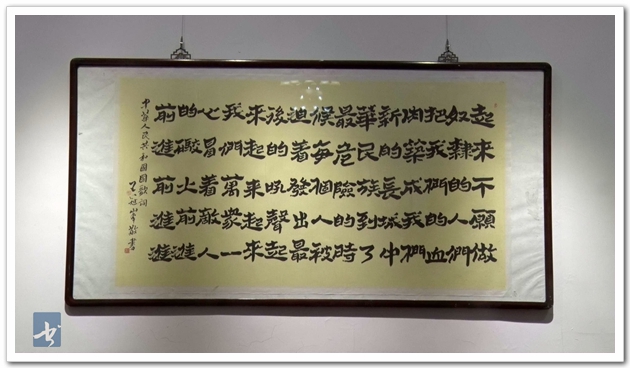 起來不願做
奴隸的人們
把我們的血
肉築成我們
新的長城中
華民族到了
最危險的時
候每個人被
迫着發出最
後的吼聲起
來起來起來
我們萬衆一
心冒着敵人
的礮火前進
前進前進進
中華人民共和國國歌詞
敬書
书